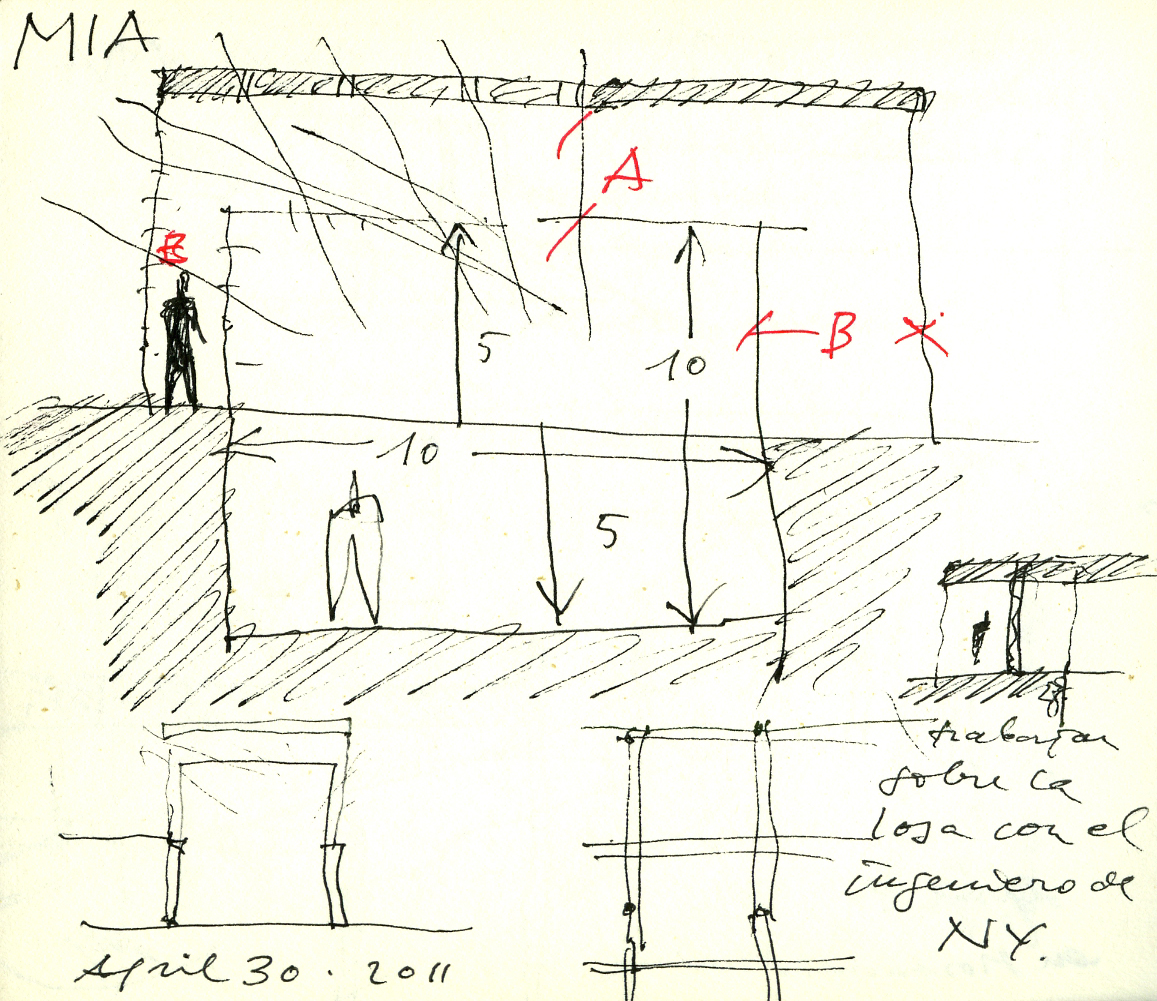 MIA
A
E
B
5
10
10
5
trabajar
sobre la
losa con el
ingeniero de
NY.
April 30. 2011